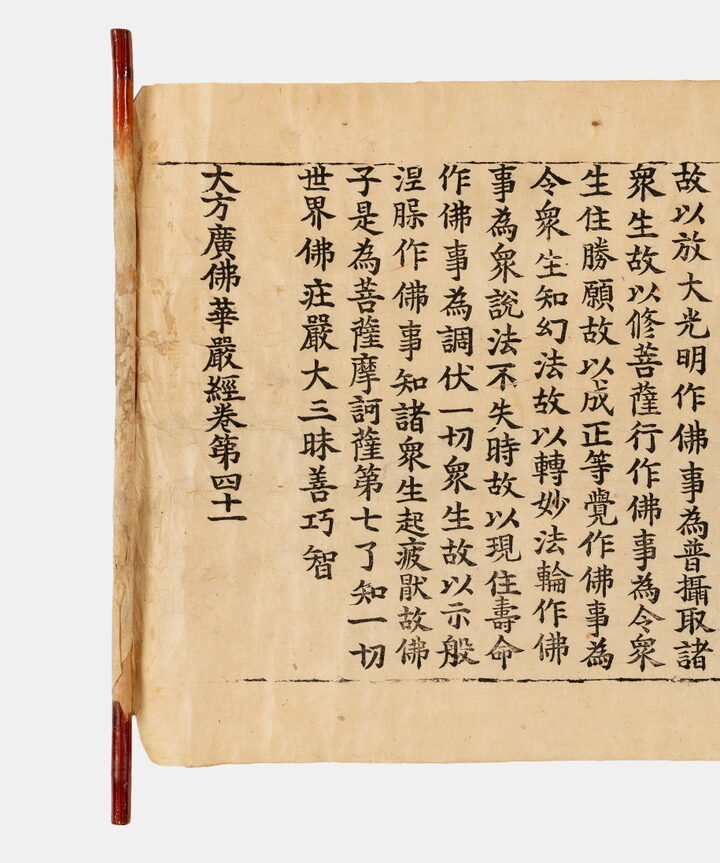 故以放大光明作佛事為普攝取諸
衆生故以修菩薩行作佛事為令衆
生住勝願故以成正等覺作佛事為
令衆生知幻法故以轉妙法輪作佛
事為衆說法不失時故以現住壽命
作佛事為調伏一切衆生故以示般
涅槃作佛事知諸衆生起疲猒故佛
子是為菩薩摩訶薩第七了知一切
世界佛莊嚴大三昧善巧智
大方廣佛華嚴經卷第四十一